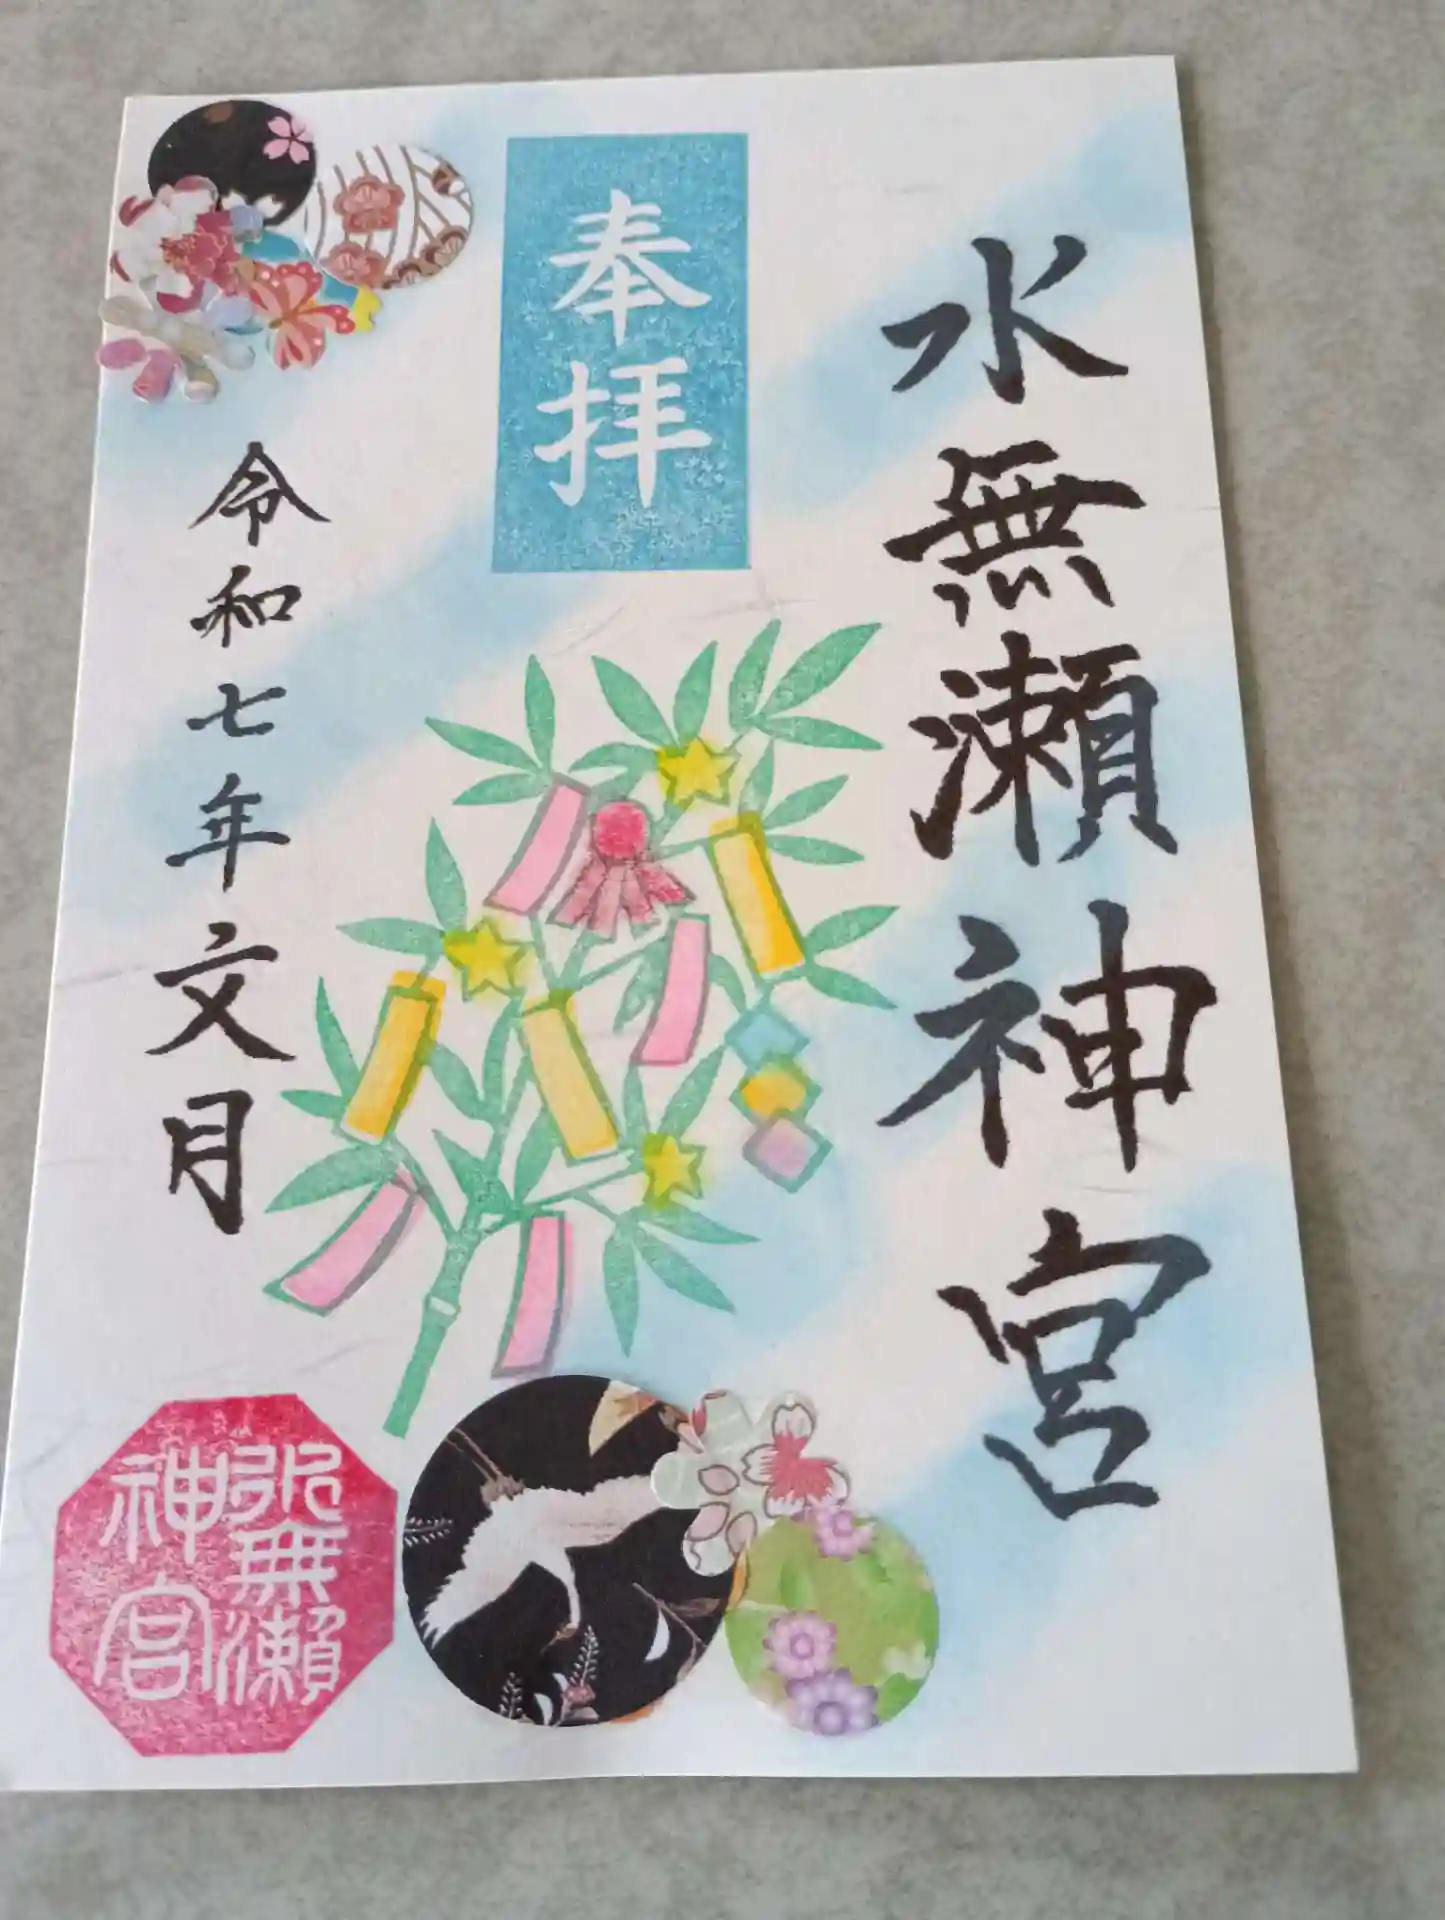 水無瀬神宮
奉拝
令和七年文月
水無瀬
神宮